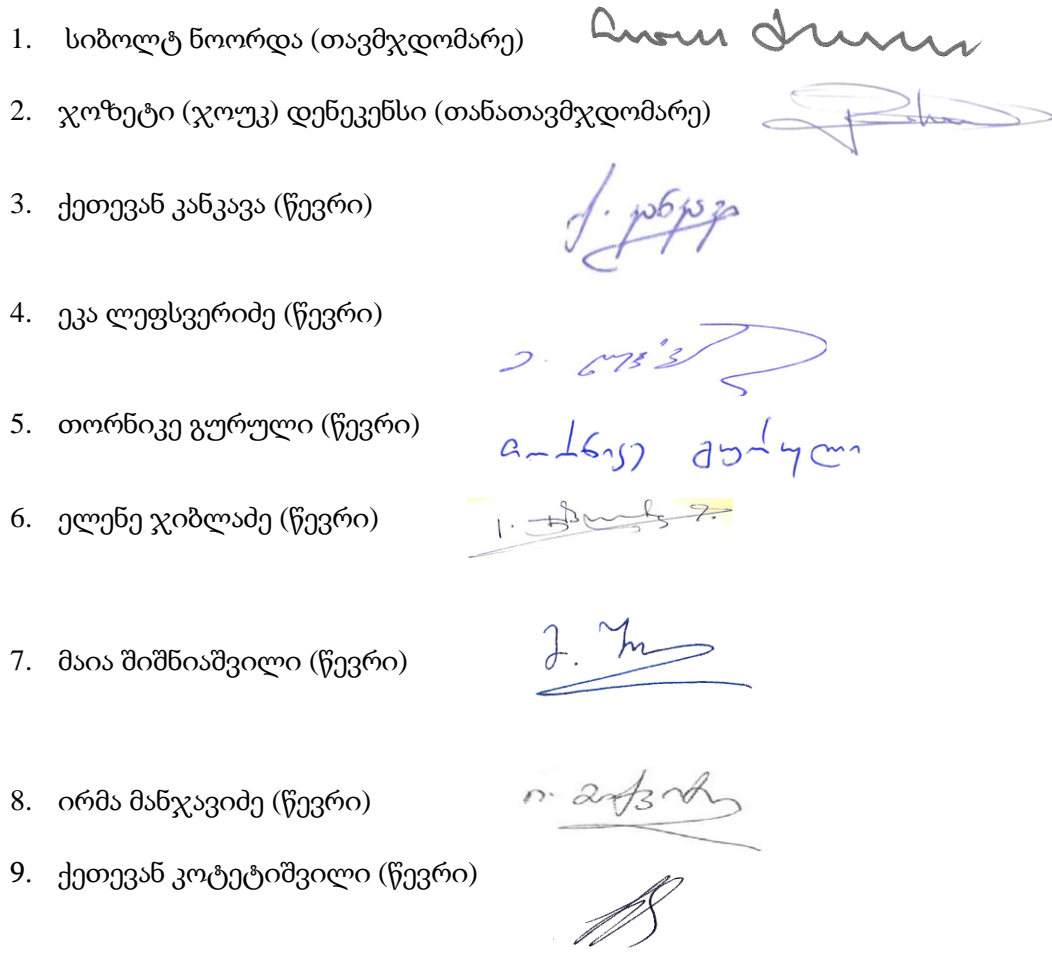 1. სიბოლტ ნოორდა (თავმჯდომარე)
2. ჯოზეტი (ჯოუკ) დენეკენსი (თანათავმჯდომარე)
3. ქეთევან კანკავა (წევრი) ქ. კანკავა
4. ეკა ლეფსვერიძე (წევრი)
5. თორნიკე გურული (წევრი) თორნიკე გურული
6. ელენე ჯიბლაძე (წევრი)
7. მაია შიშნიაშვილი (წევრი)
8. ირმა მანჯავიძე (წევრი)
9. ქეთევან კოტეტიშვილი (წევრი)